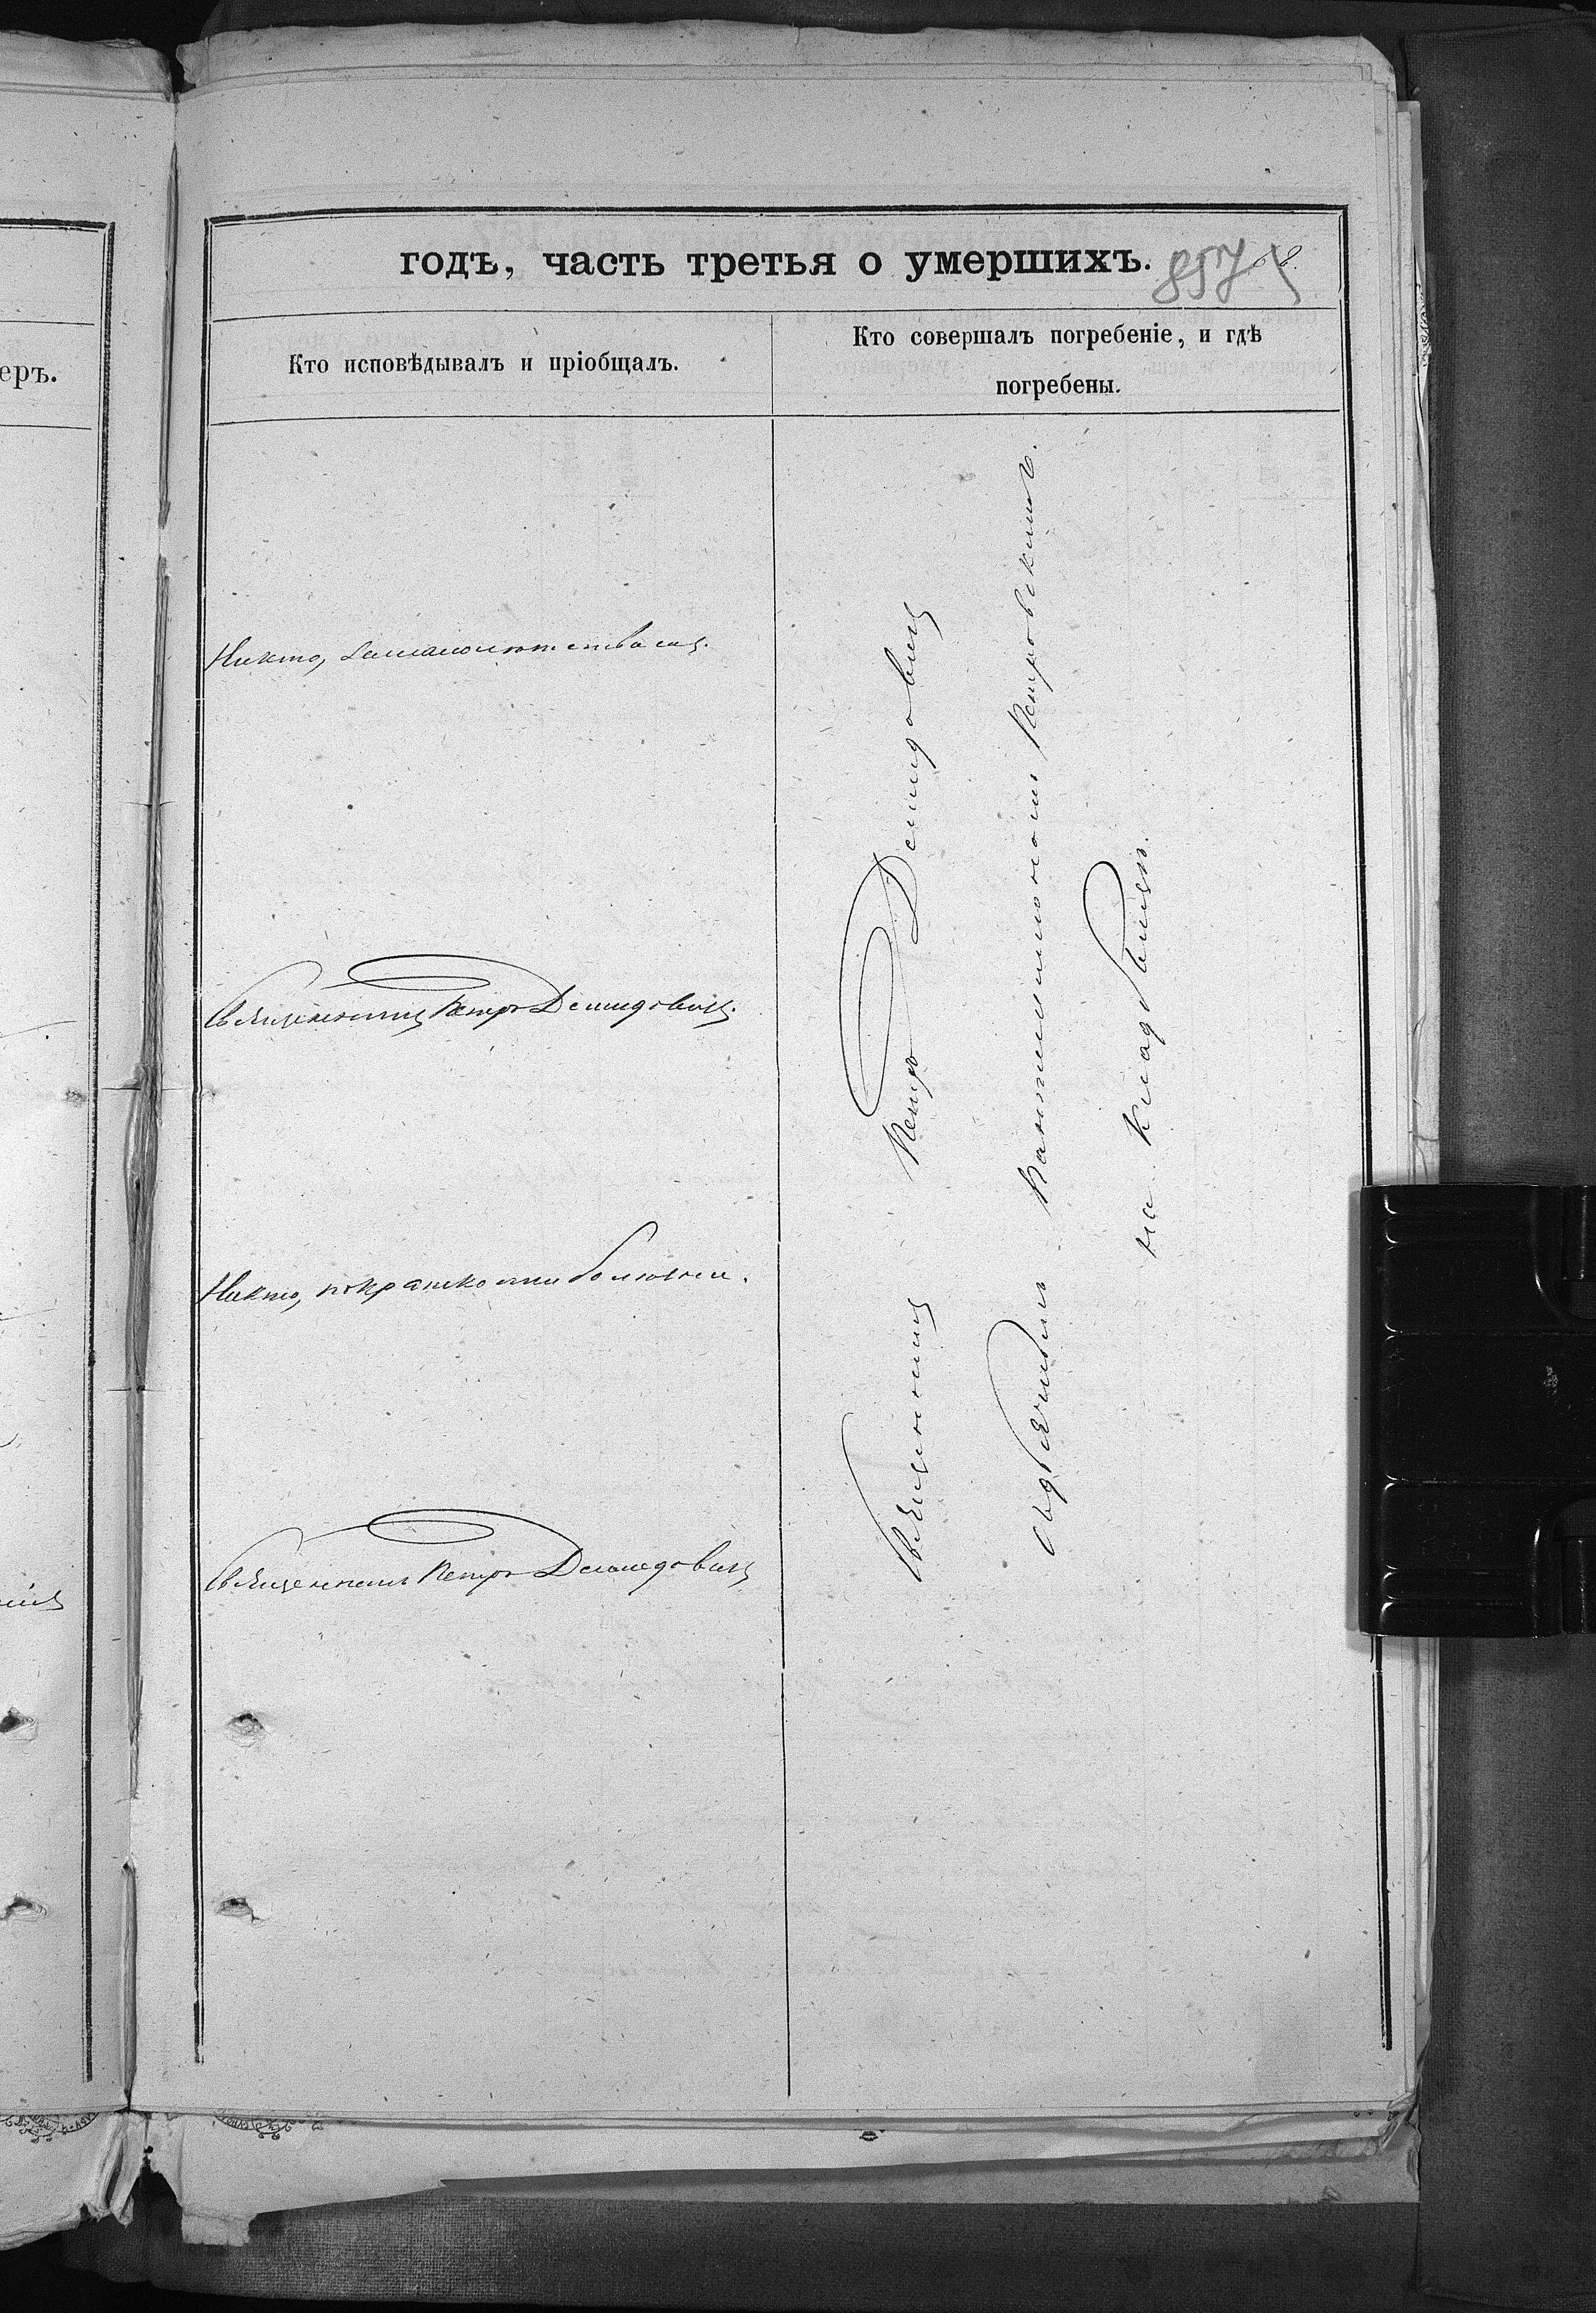 годъ, часть третья о умершихъ.
857
еръ.
Кто исповѣдывалъ и пріобщалъ.
Кто совершалъ погребеніе, и гдѣ
погребены.
Никто, замалолѣтствомъ.
Священникъ Петръ Демидовичъ.
Никто, по краткости болѣзни.
Священникъ Петръ Демидовичъ
Священникъ Петръ Демидовичъ
съ дьячкомъ Пантелеимономъ Петровскимъ.
на кладбищѣ.